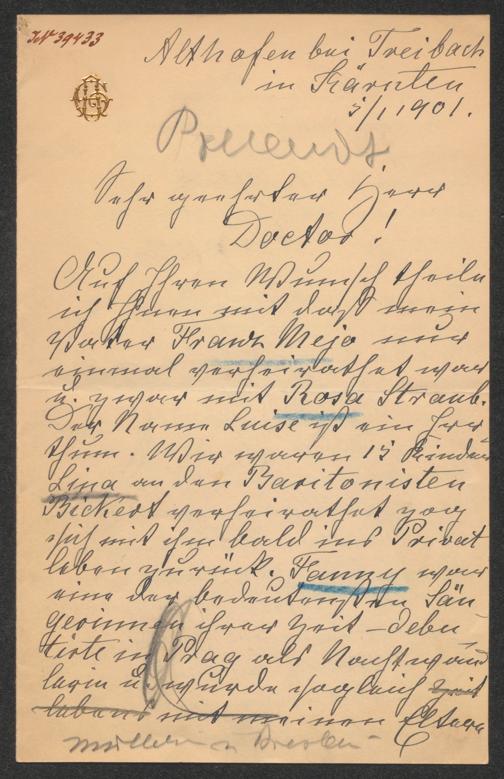 IN 39433
Althofen bei Treibach
in Kärnten
5/1 1901.
Sehr geehrter Herr
Doctor!
Auf Ihren Wunsch theile
ich Ihnen mit daß mein
Vater Franz Mejo nur
einmal verheirathet war
u. zwar mit Rosa Straub.
Der Name Luise ist ein Irr
thum. Wir waren 13 Kinder
Lina an den Baritonisten
Bickert verheirathet zog
sich mit ihm bald ins Privat
leben zurück. Fanny war
eine der bedeutensten Sän
gerinnen ihrer Zeit – debu
tirte in Prag als Nachtwand
lerin u. wurde sogleich zeit
lebens mit meinen Eltern